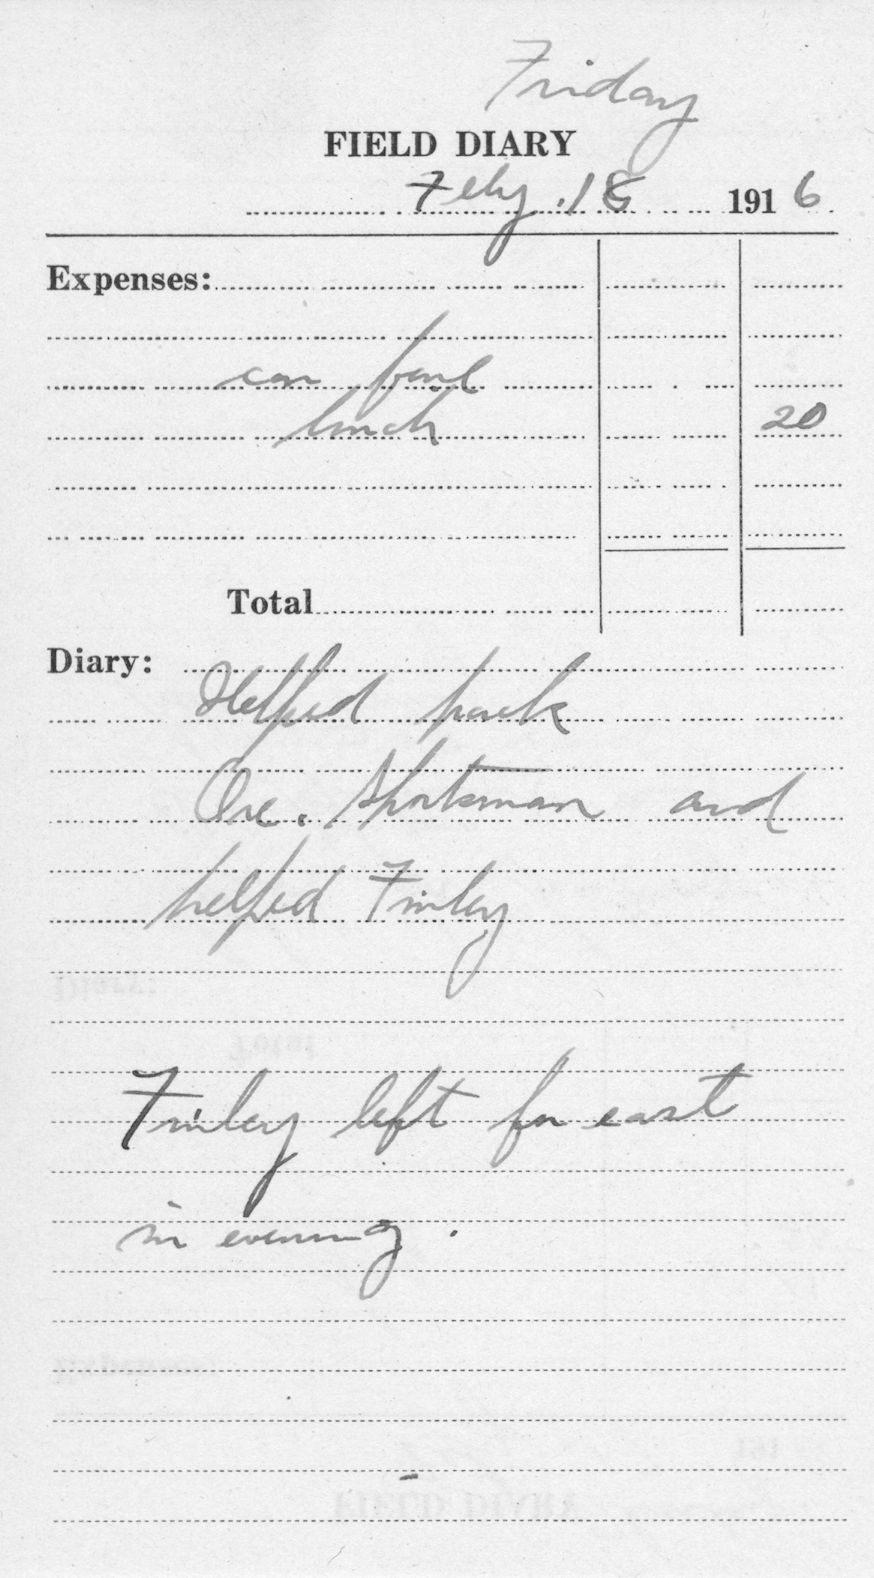 Friday
FIELD DIARY
Feby. 18 1916
Expenses:
car fare
lunch 20
Total
Diary: Helped pack
Ore. Sportsman and
helped Finley
Finley left for east
in evening.